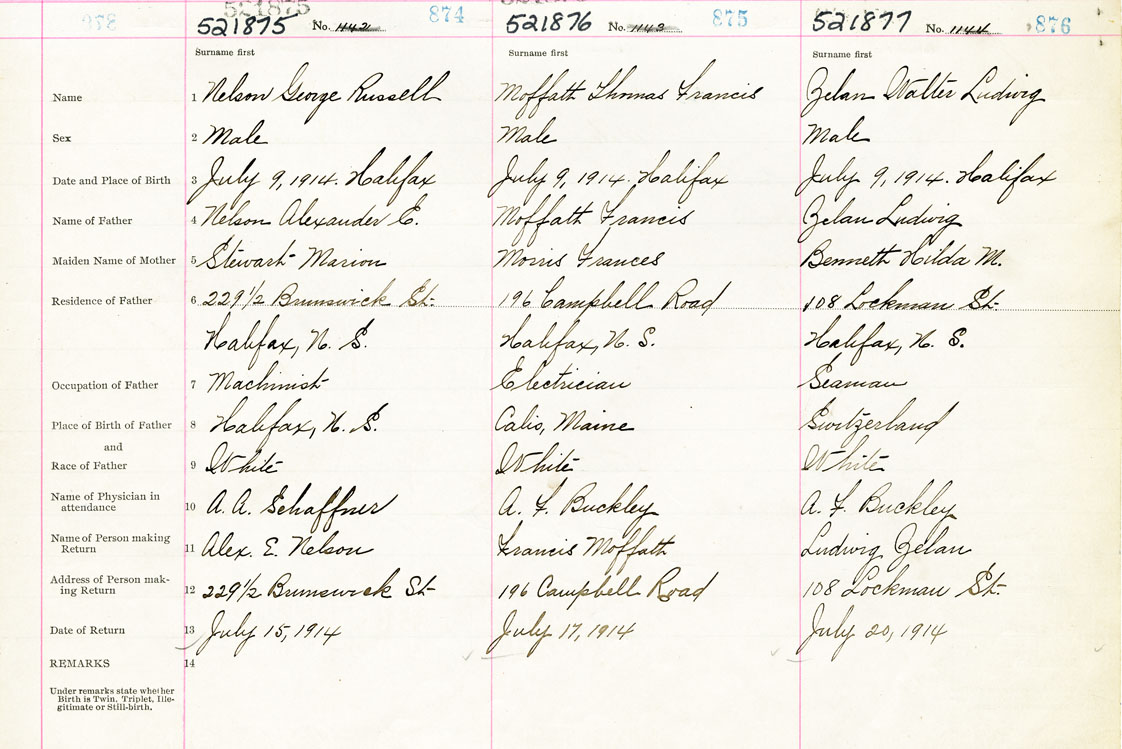 521875 No. 1142 874 521876 No. 1143 875 521877 No. 1144 876
Surname first Surname first Surname first
Name 1 Nelson George Russell Moffatt Thomas Francis Zelan Walter Ludwig
Sex 2 Male Male Male
Date and Place of Birth 3 July 9, 1914. Halifax July 9, 1914. Halifax July 9, 1914. Halifax
Name of Father 4 Nelson Alexander E. Moffatt Francis Zelan Ludwig
Maiden Name of Mother 5 Stewart Marion Morris Frances Bennett Hilda M.
Residence of Father 6 229½ Brunswick St. 196 Campbell Road 108 Lockman St.
Halifax, N. S. Halifax, N. S. Halifax, N. S.
Occupation of Father 7 Machinist Electrician Seaman
Place of Birth of Father 8 Halifax, N. S. Calis, Maine Switzerland
and
Race of Father 9 White White White
Name of Physician in
attendance 10 A. A. Schaffner A. F. Buckley A. F. Buckley
Name of Person making
Return 11 Alex. E. Nelson Francis Moffatt Ludwig Zelan
Address of Person mak-
ing Return 12 229½ Brunswick St. 196 Campbell Road 108 Lockman St.
Date of Return 13 July 15, 1914 July 17, 1914 July 20, 1914
REMARKS 14
Under remarks state whether
Birth is Twin, Triplet, Ille-
gitimate or Still-birth.